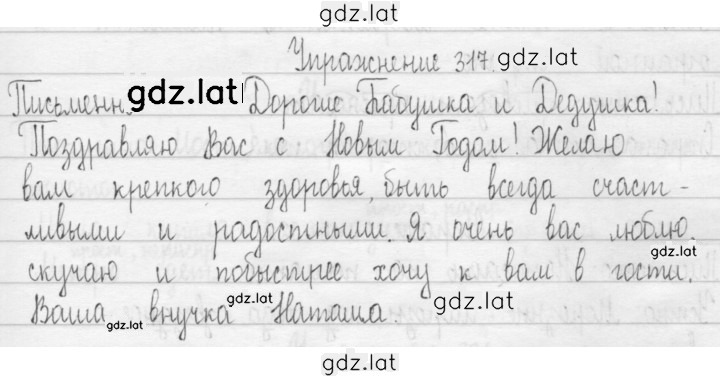 gdz.lat
Упражнение 317 gdz.lat
Письменн. gdz.lat Дорогие Бабушка и Дедушка!
Поздравляю Вас с Новым Годом! Желаю
вам крепкого здоровья, быть всегда счаст-
ливыми и радостными. Я очень вас люблю,
gdz.lat
скучаю и побыстрее хочу к вам в гости.
Ваша gdz.lat внучка gdz.lat Наташа. gdz.lat
gdz.lat